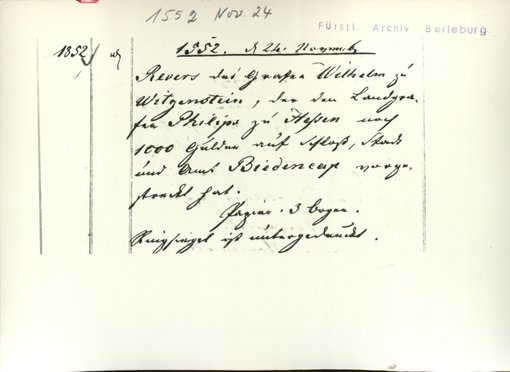 1552 Nov. 24
Fürstl. Archiv Berleburg
1852
1552. d 24. Novemb
Revers des Grafen Wilhelm zu
Witgenstein, der den Landgra-
fen Philips zu Hessen noch
1000 Gulden auf Schloß, Stadt
und Amt Biedencap vorge-
streckt hat.
Papier. 3 Bogen.
Ringsiegel ist untergedruckt.